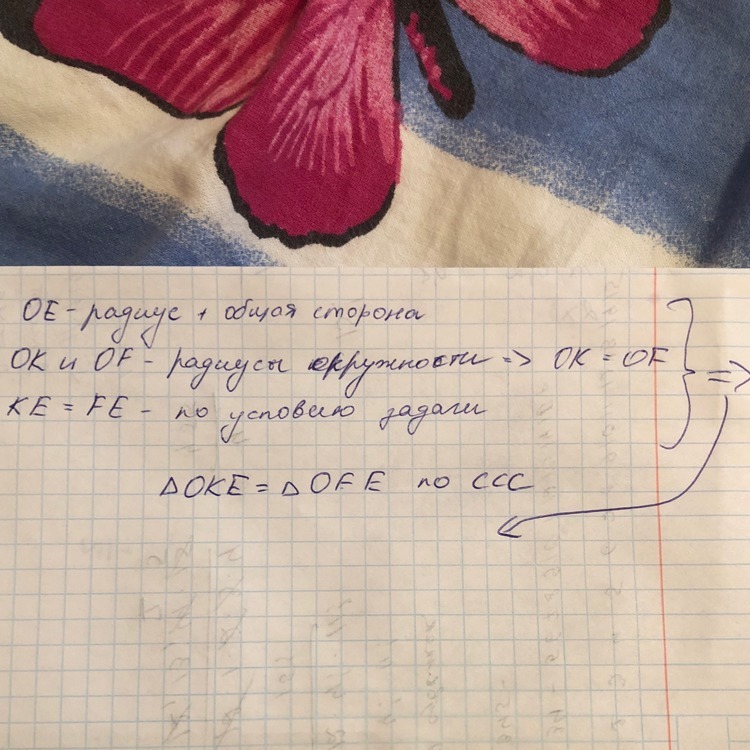 OE - радиус + общая сторона
OK и OF - радиусы окружности => OK = OF
KE = FE - по условию задачи
=>
△OKE = △OFE по ССС